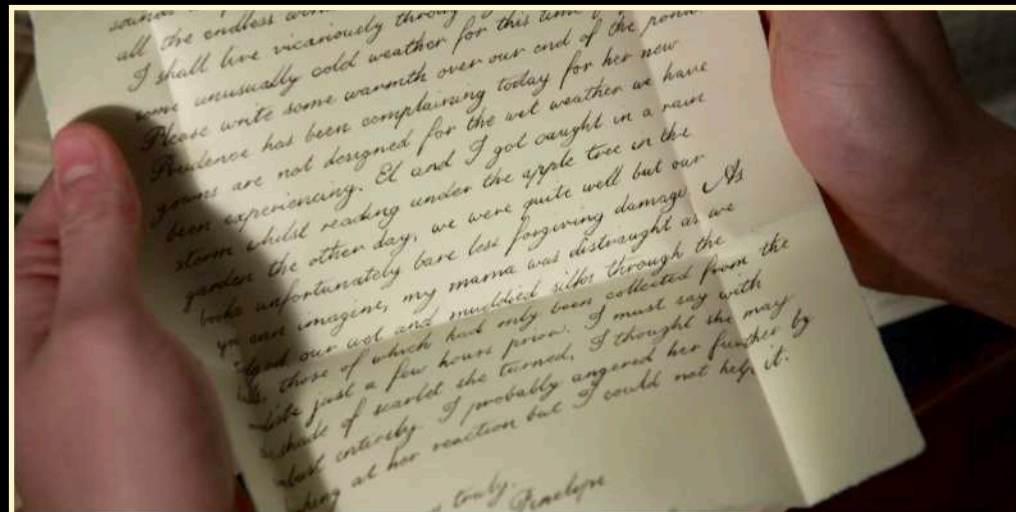 sounds
all the endless
I shall live vicariously through
some unusually cold weather for this time
Please write some warmth over our end of the pond.
Prudence has been complaining today for her new
gowns are not designed for the wet weather we have
been experiencing. El and I got caught in a rain
storm whilst reading under the apple tree in the
garden the other day, we were quite well but our
books unfortunately bare less forgiving damage. As
you can imagine, my mama was distraught as we
our wet and muddied silks through the
those of which had only been collected from the
just a few hours prior. I must say with
shade of scarlet she turned, I thought she may
entirely. I probably angered her further by
at her reaction but I could not help it.
truly,
Penelope